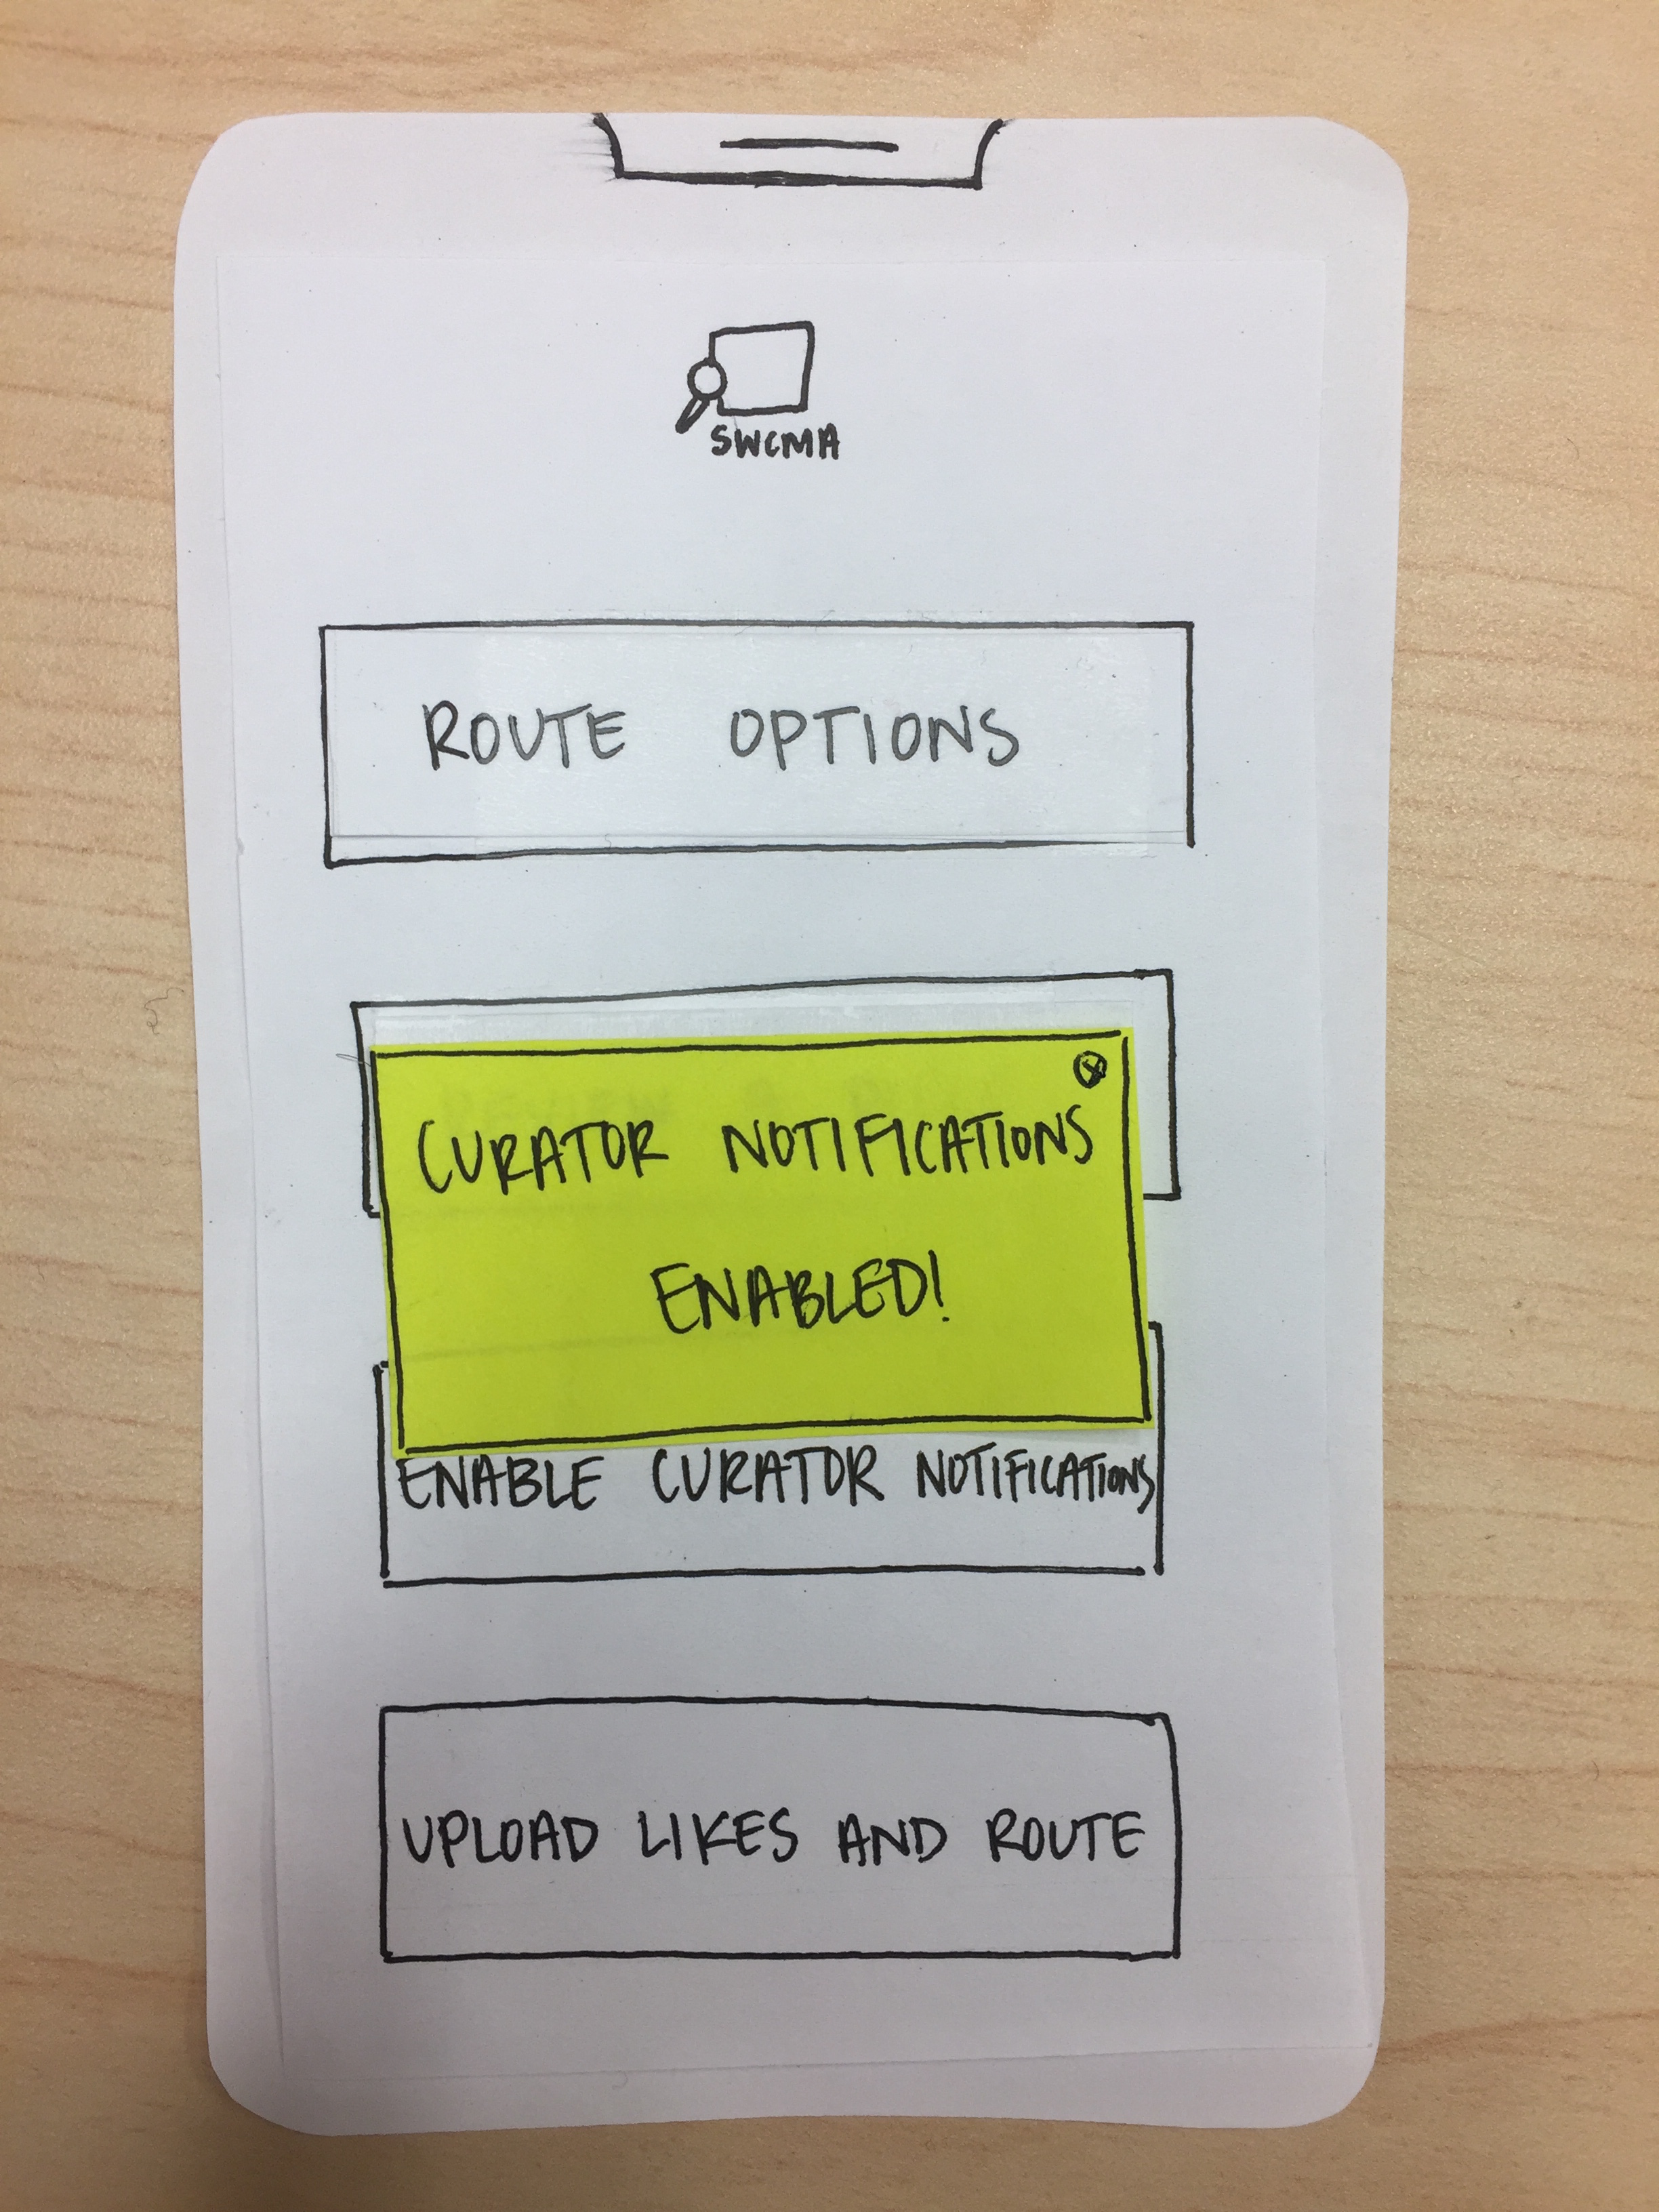 SWCMA
ROUTE OPTIONS
CURATOR NOTIFICATIONS
ENABLED!
ENABLE CURATOR NOTIFICATIONS
UPLOAD LIKES AND ROUTE